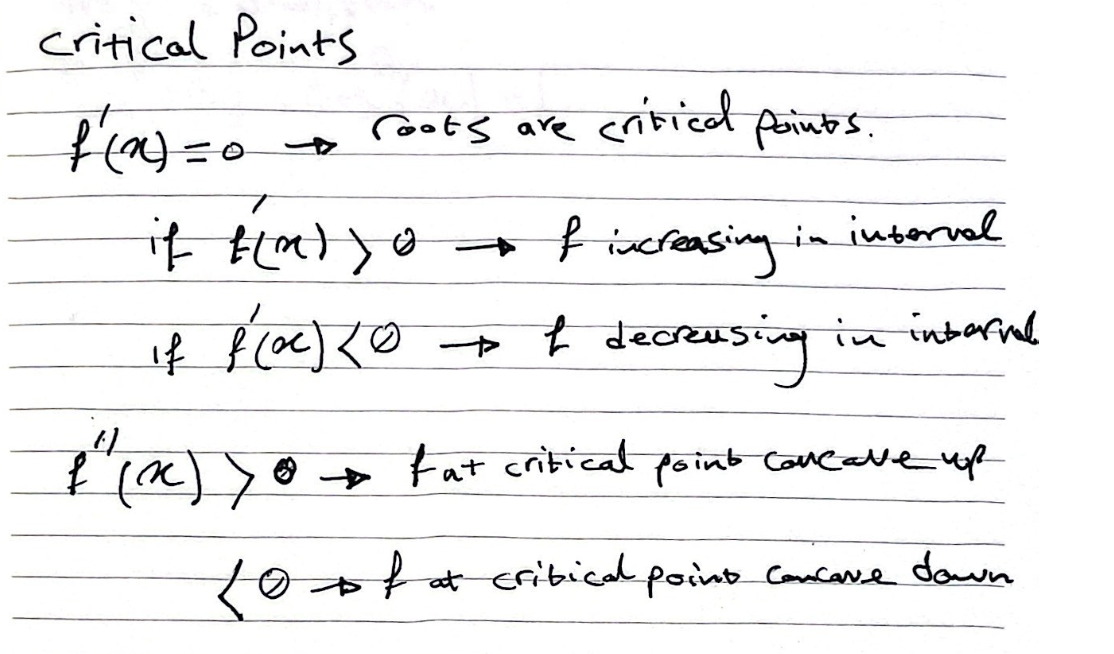 Critical Points
f'(x) = 0 → roots are critical points.
if f'(x) > 0 → f increasing in interval
if f'(x) < 0 → f decreasing in interval
f''(x) > 0 → f at critical point concave up
< 0 → f at critical point concave down